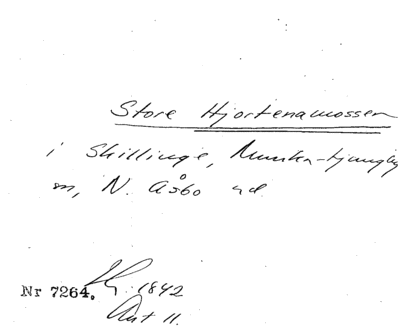 Store Hjortenamossen
i Skillinge, Munka-Ljungby
sn, N. Åsbo hd
Nr 7264. 1842
Akt 11.